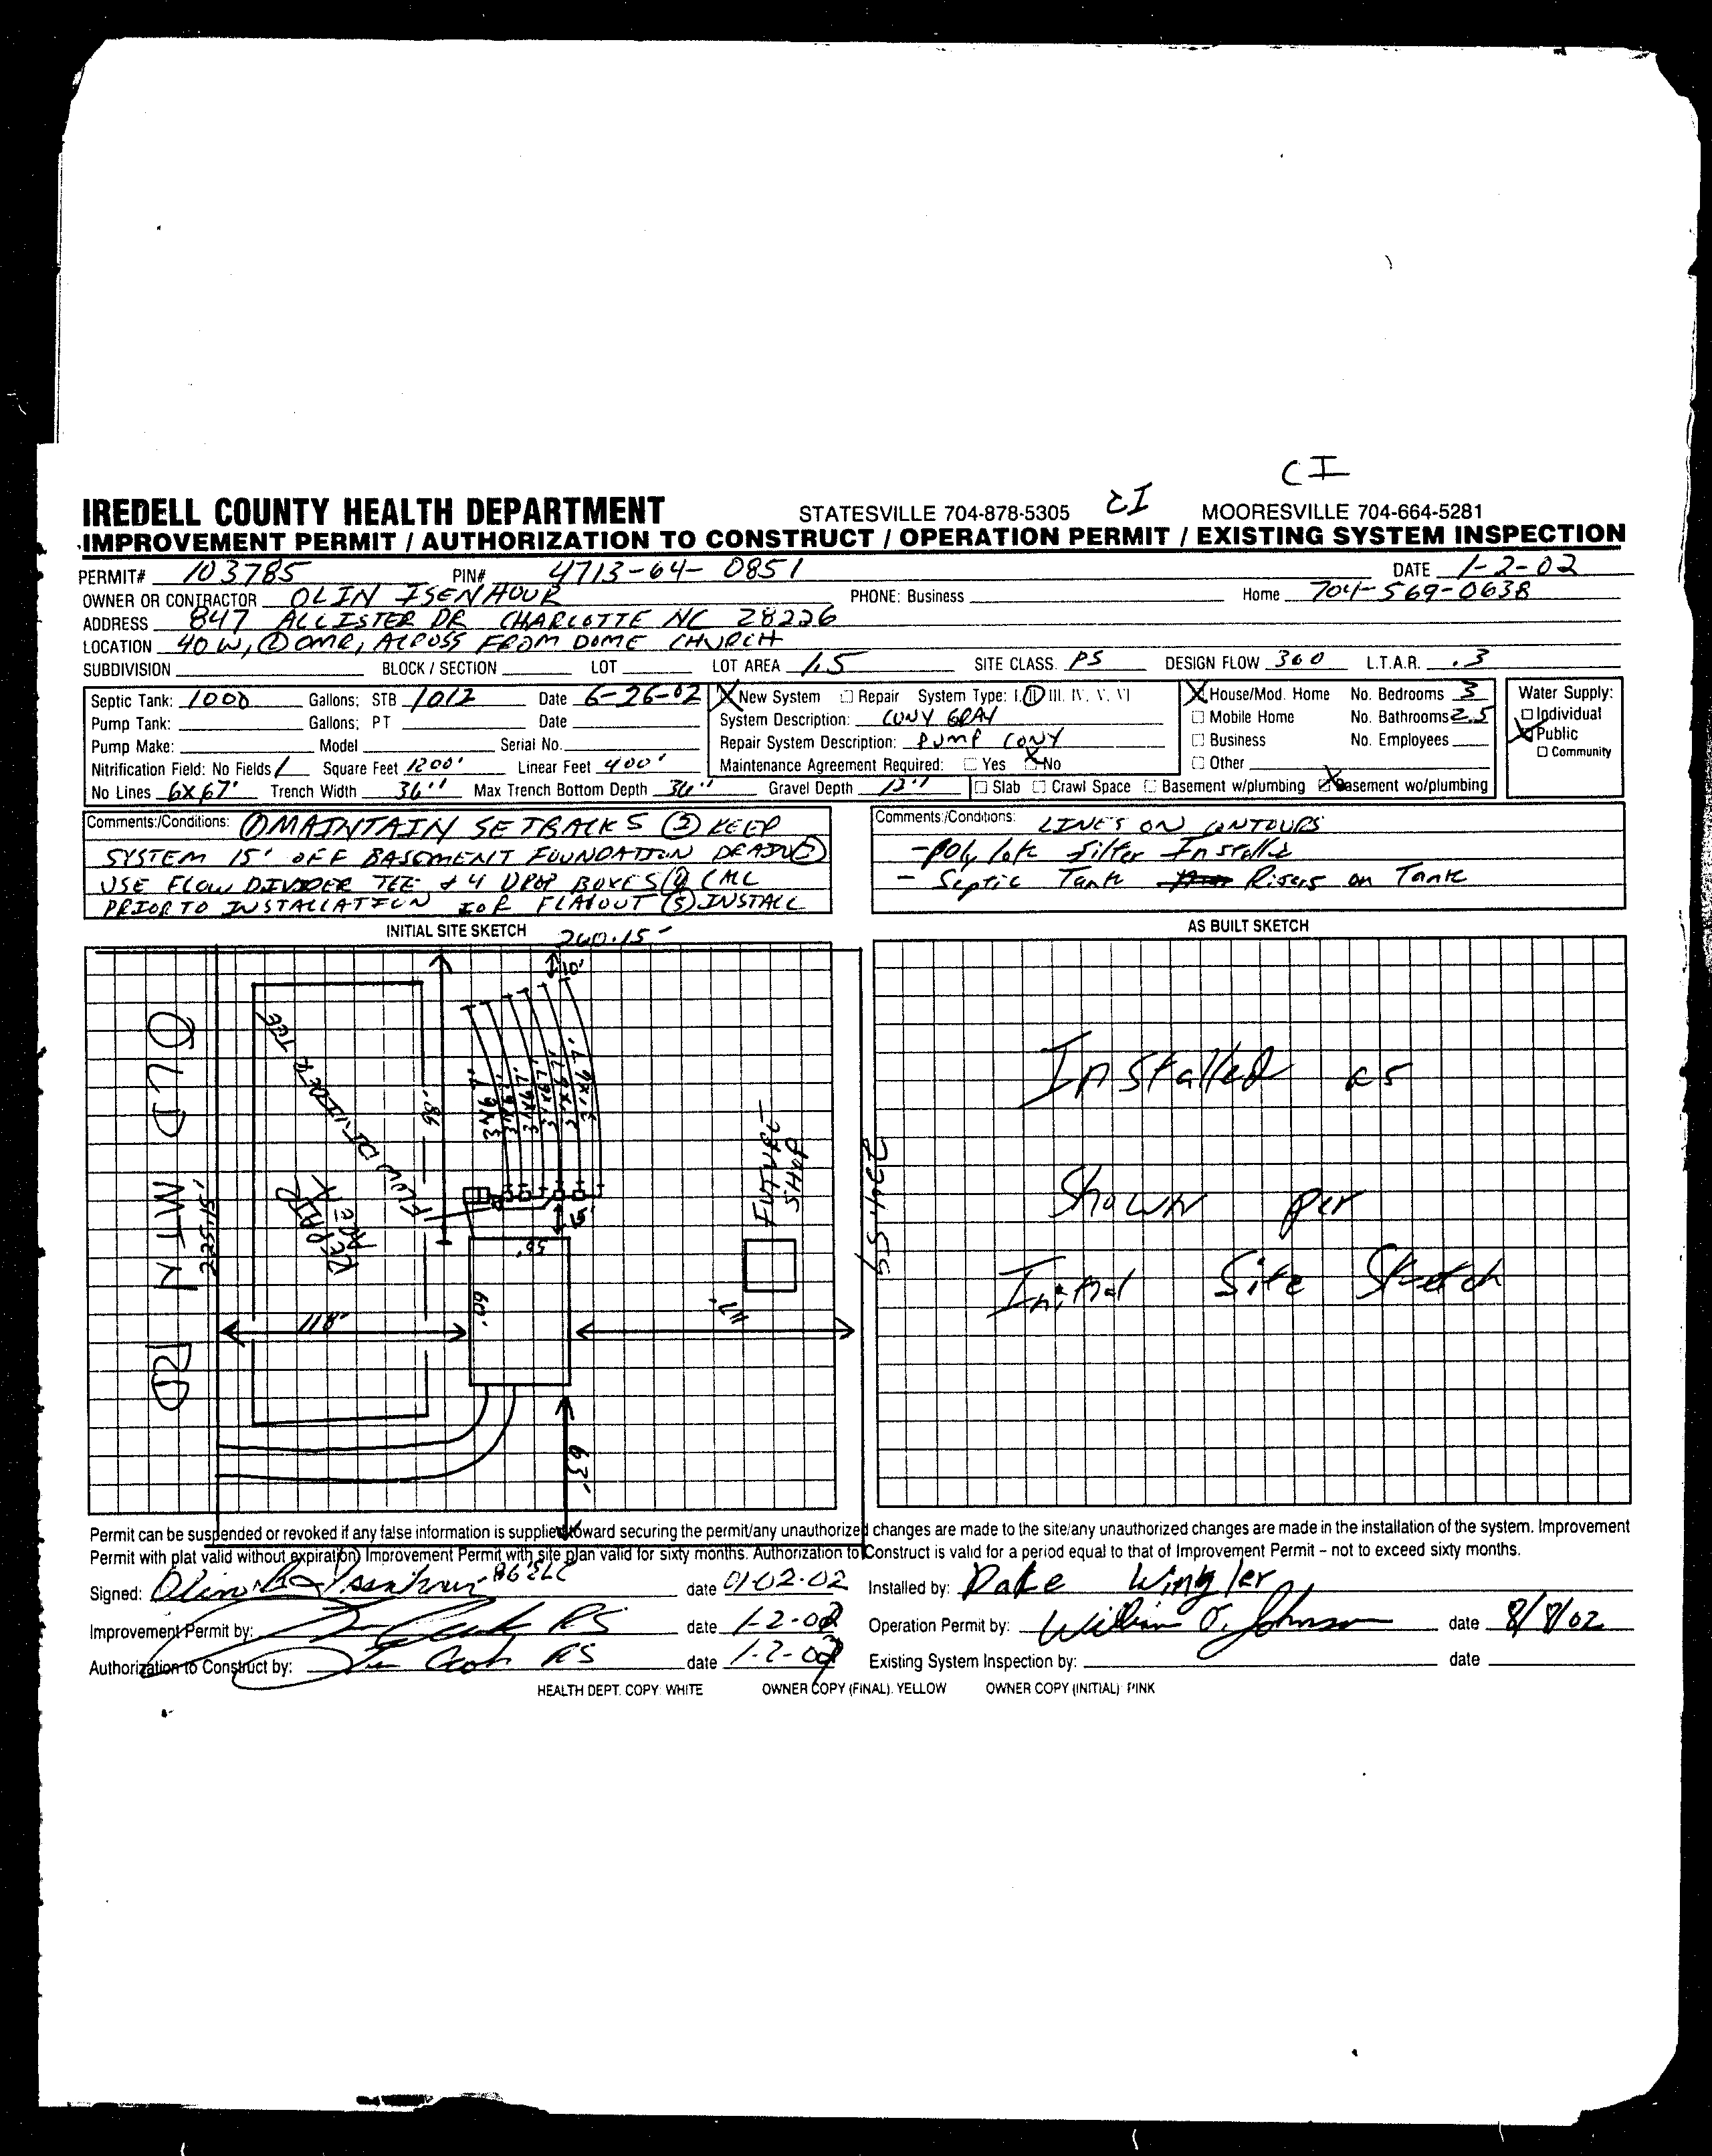 CI
IREDELL COUNTY HEALTH DEPARTMENT STATESVILLE 704-878-5305 CI MOORESVILLE 704-664-5281
IMPROVEMENT PERMIT / AUTHORIZATION TO CONSTRUCT / OPERATION PERMIT / EXISTING SYSTEM INSPECTION
PERMIT# 103785 PIN# 4713-64-0851 DATE 1-2-02
OWNER OR CONTRACTOR OLIN ISENHOUR PHONE: Business Home 704-569-0638
ADDRESS 847 ALLISTER DR CHARLOTTE NC 28226
LOCATION 40 W, ACROSS FROM DOME CHURCH
SUBDIVISION BLOCK / SECTION LOT LOT AREA 1.5 SITE CLASS. PS DESIGN FLOW 360 L.T.A.R. .3
Septic Tank: 1000 Gallons; STB 1012 Date 6-26-02 New System Repair System Type: I, II, III, IV, V, VI House/Mod. Home No. Bedrooms 3 Water Supply:
Pump Tank: Gallons; PT Date System Description: CONV GRAV Mobile Home No. Bathrooms 2.5 Individual
Pump Make: Model Serial No. Repair System Description: PUMP CONV Business No. Employees Public
Nitrification Field: No Fields 1 Square Feet 1200' Linear Feet 400' Maintenance Agreement Required: Yes No Other Community
No Lines 6X67' Trench Width 36" Max Trench Bottom Depth 36" Gravel Depth 12" Slab Crawl Space Basement w/plumbing Basement wo/plumbing
Comments:/Conditions: ① MAINTAIN SETBACKS ② KEEP
SYSTEM 15' OFF BASEMENT FOUNDATION DRAIN ③
USE FLOW DIVIDER TEE & 4 DROP BOXES ④ CALL
PRIOR TO INSTALLATION FOR FLAGOUT ⑤ INSTALL
Comments:/Conditions: LINES ON CONTOURS
- Poly lok filter Installed
- Septic Tank Risers on Tank
INITIAL SITE SKETCH 260.15'
AS BUILT SKETCH
10'
OLD MTN RD
225.15'
FLOW DIVIDER TEE
REPAIR AREA
98'
3'X67'
3'X67'
3'X67'
3'X67'
3'X67'
3'X67'
15'
FUTURE SHOP
234.59
60'
118'
117'
63'
Installed as
Shown per
Initial Site Sketch
Permit can be suspended or revoked if any false information is supplied toward securing the permit/any unauthorized changes are made to the site/any unauthorized changes are made in the installation of the system. Improvement
Permit with plat valid without expiration) Improvement Permit with site plan valid for sixty months. Authorization to Construct is valid for a period equal to that of Improvement Permit – not to exceed sixty months.
Signed: date 01-02-02 Installed by: Dake Wingler
Improvement Permit by: RS date 1-2-02 Operation Permit by: William O. Johnson date 8/8/02
Authorization to Construct by: RS date 1-2-02 Existing System Inspection by: date
HEALTH DEPT. COPY: WHITE OWNER COPY (FINAL). YELLOW OWNER COPY (INITIAL) PINK